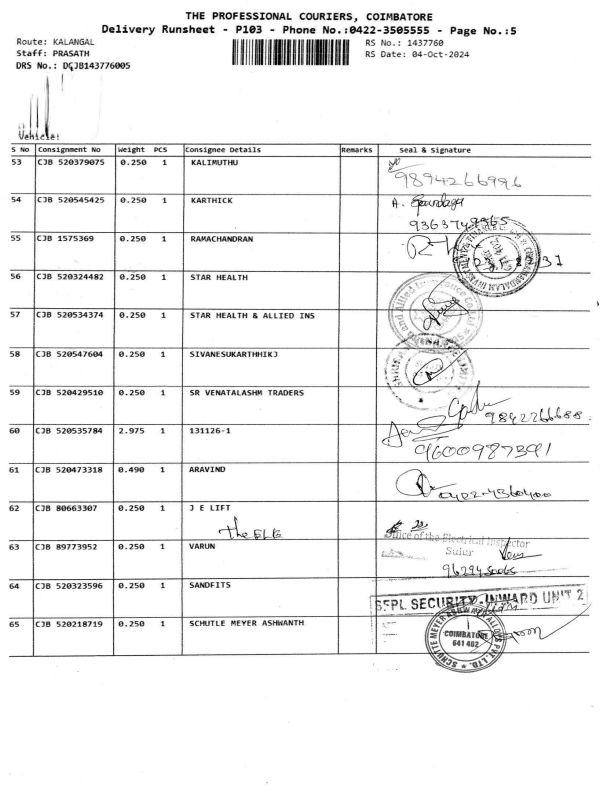 THE PROFESSIONAL COURIERS, COIMBATORE
Delivery Runsheet - P103 - Phone No.:0422-3505555 - Page No.:5
Route: KALANGAL
RS No.: 1437760
Staff: PRASATH
RS Date: 04-Oct-2024
DRS No.: DCJB143776005
Vehicle:
S No Consignment No Weight PCS Consignee Details Remarks Seal & Signature
53 CJB 520379075 0.250 1 KALIMUTHU
9894266996
54 CJB 520545425 0.250 1 KARTHICK A.
55 CJB 1575369 0.250 1 RAMACHANDRAN
56 CJB 520324482 0.250 1 STAR HEALTH
57 CJB 520534374 0.250 1 STAR HEALTH & ALLIED INS
58 CJB 520547604 0.250 1 SIVANESUKARTHHIKJ
59 CJB 520429510 0.250 1 SR VENATALASHM TRADERS
9842266688
60 CJB 520535784 2.975 1 131126-1
9600987391
61 CJB 520473318 0.490 1 ARAVIND
62 CJB 80663307 0.250 1 J E LIFT
The ELE
Office of the Electrical Inspector
Sulur
63 CJB 89773952 0.250 1 VARUN
64 CJB 520323596 0.250 1 SANDFITS
SFPL SECURITY-INWARD UNIT 2
65 CJB 520218719 0.250 1 SCHUTLE MEYER ASHWANTH
COIMBATORE
641 402